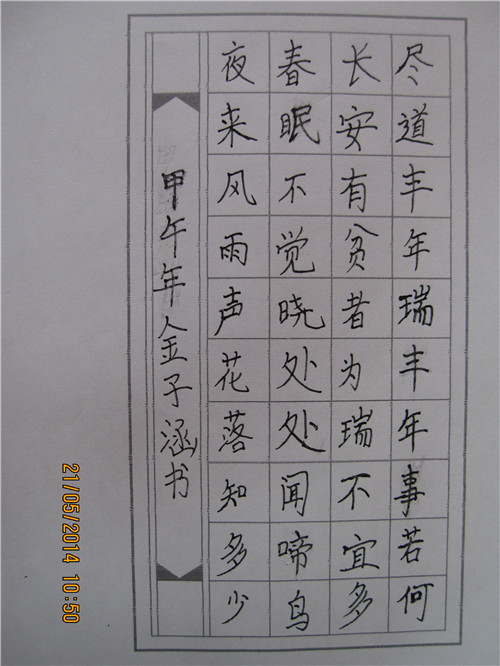 尽道丰年瑞丰年事若何
长安有贫者为瑞不宜多
春眠不觉晓处处闻啼鸟
夜来风雨声花落知多少
甲午年金子涵书
21/05/2014 10:50